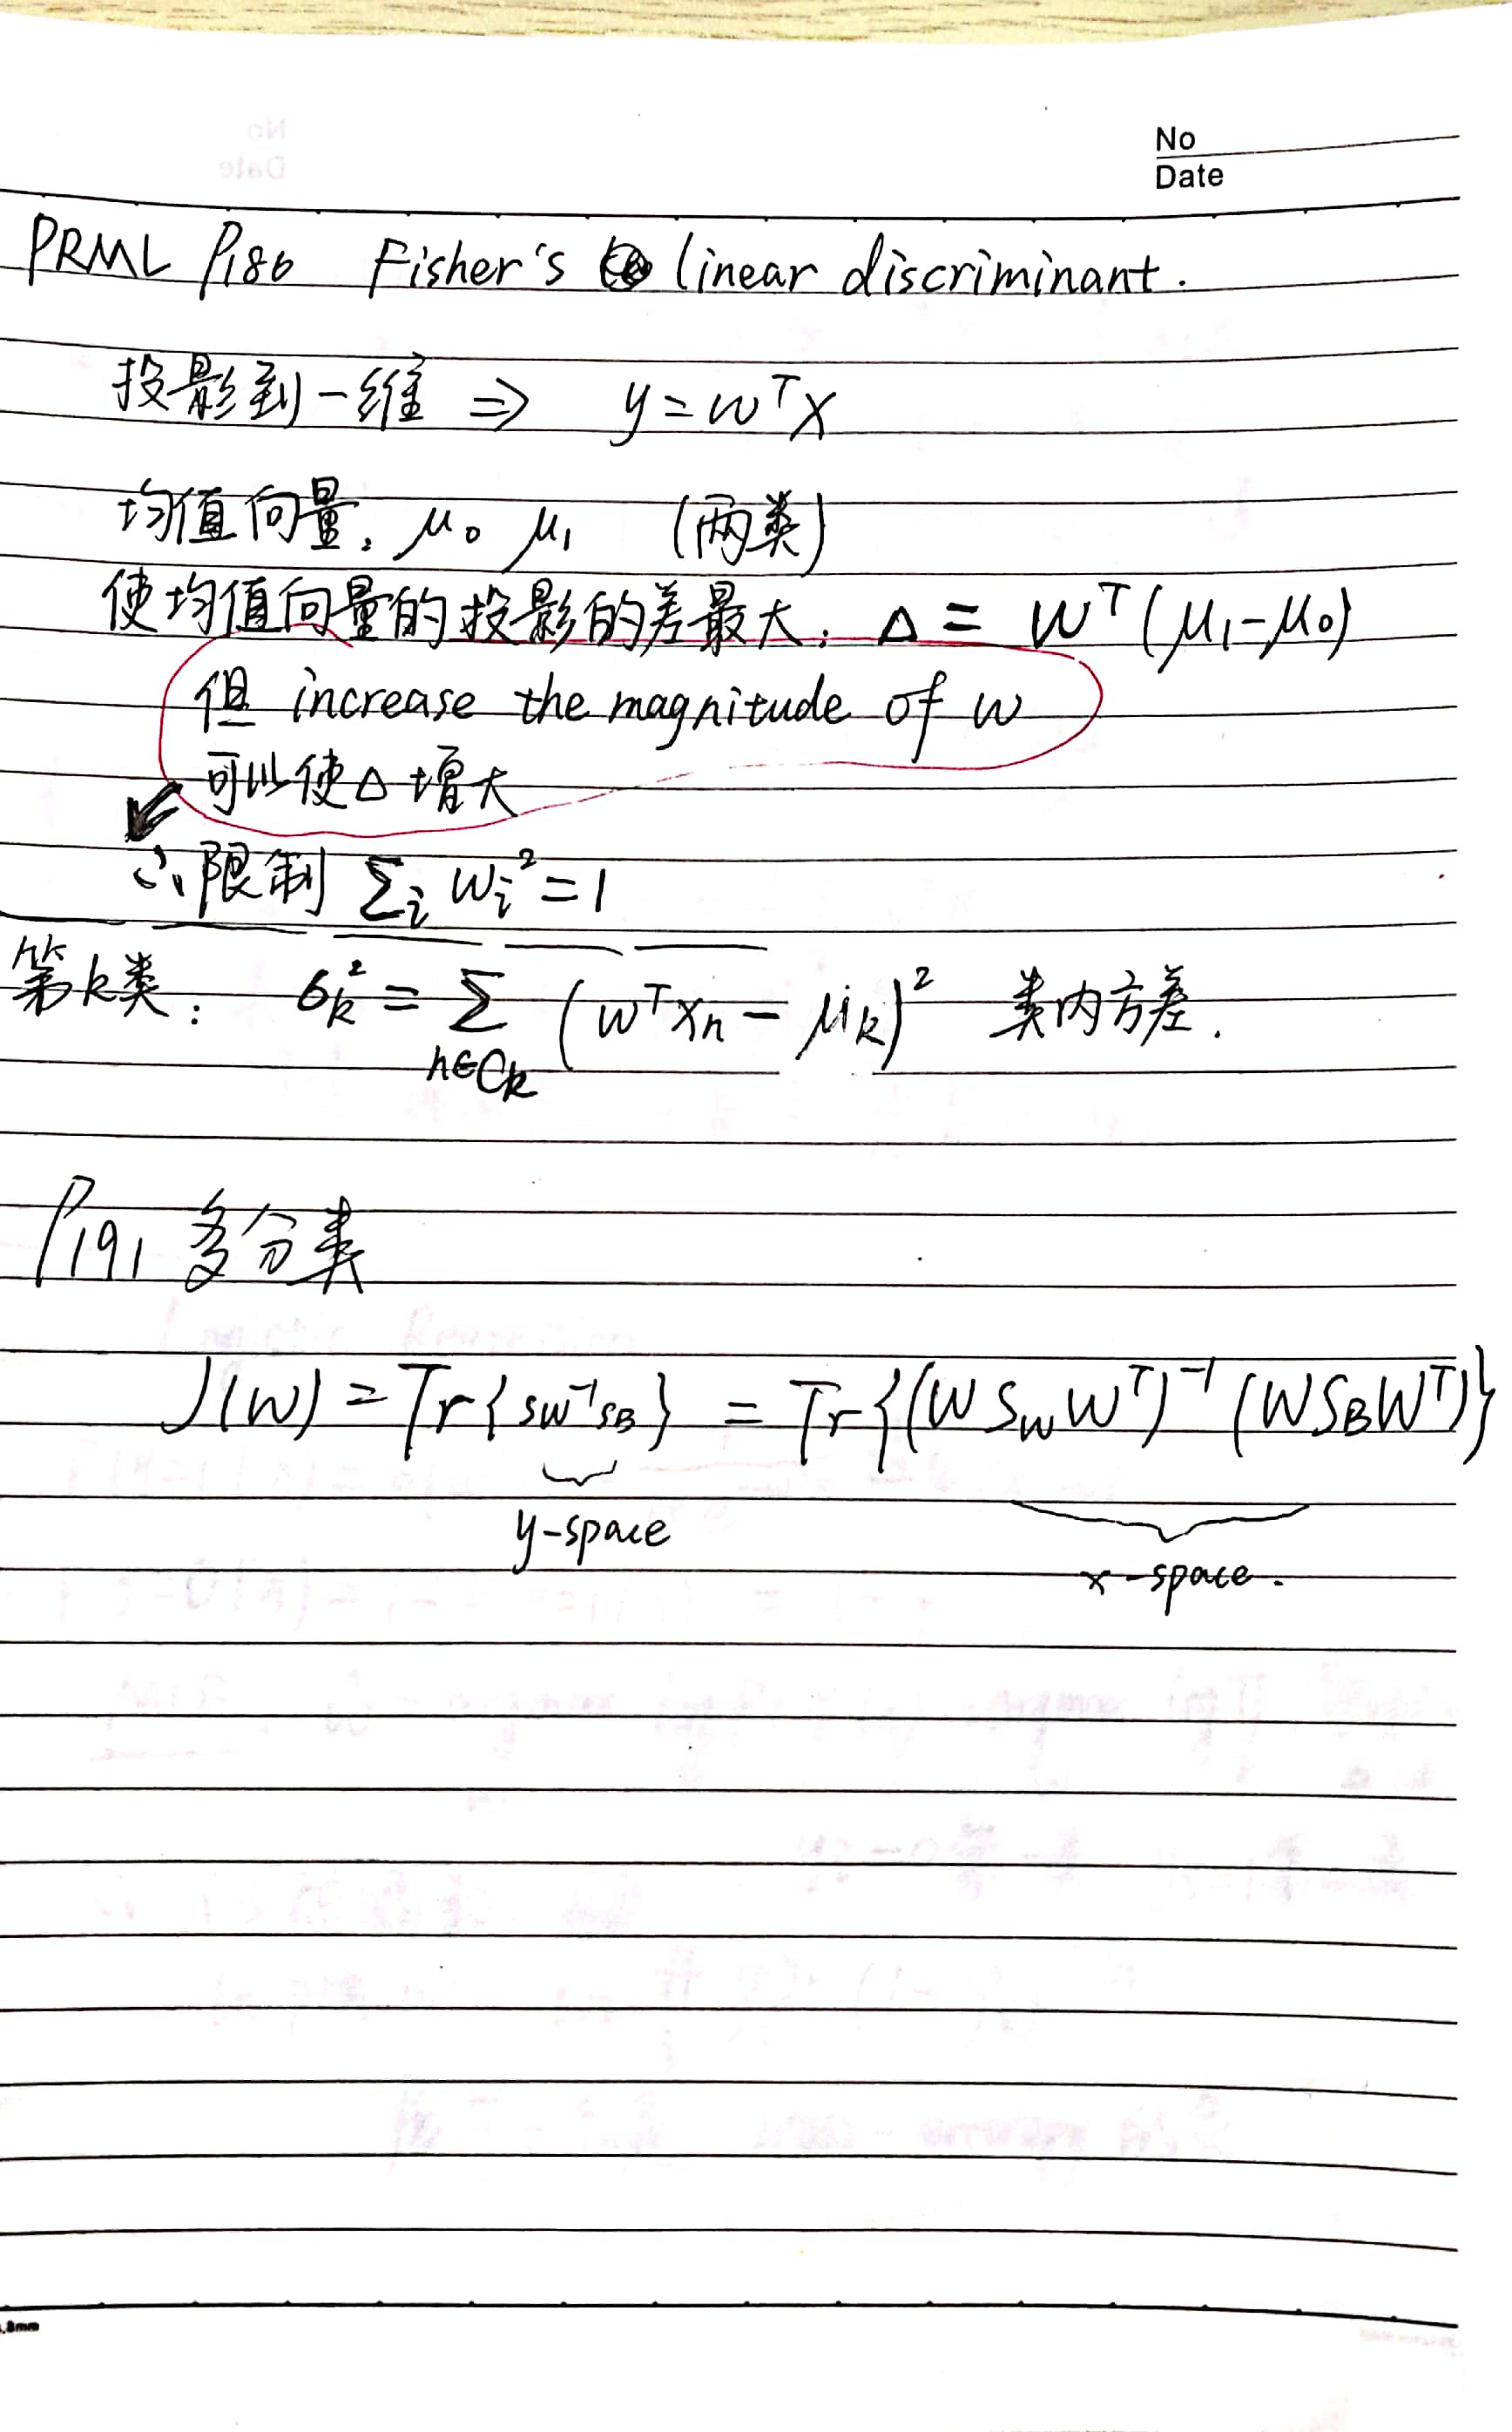 No
Date
PRML P186 Fisher's linear discriminant.
投影到一维 ⇒ y = wᵀx
均值向量: μ₀ μ₁ (两类)
使均值向量的投影的差最大: Δ = wᵀ(μ₁-μ₀)
但 increase the magnitude of w
可以使Δ增大
∴限制 Σᵢ wᵢ² = 1
第k类: σₖ² = Σ_{n∈Cₖ} (wᵀxₙ - μₖ)² 类内方差.
P191 多分类
J(W) = Tr{sw⁻¹sB} = Tr{(WS_wWᵀ)⁻¹(WS_BWᵀ)}
y-space
x-space.
.8mm